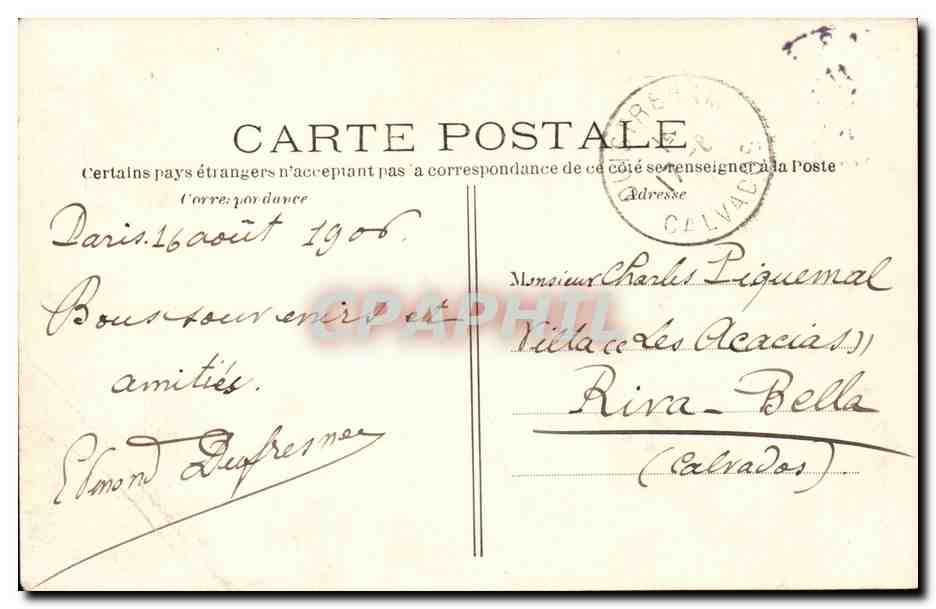 CARTE POSTALE
Certains pays étrangers n'acceptant pas la correspondance de ce côté se renseigner à la Poste
Correspondance
Adresse
OUISTREHAM
17 - 8
CALVADOS
Paris. 16 août 1906.
Bons souvenirs et
amitiés.
Edmond Deofresnes
Monsieur Charles Piquemal
Villa «Les Acacias»
Riva-Bella
(Calvados).
CPAPHIL